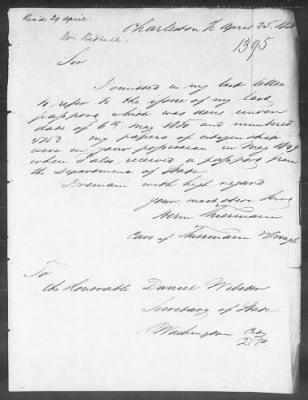 Rec'd 29 April.
Mr. Bidwell
Charleston April 25th
1395
Sir
I omitted in my last letter
to refer to the issue of my last
passport which was done under
date of 6th May 1850 and numbered
my papers of citizenship
were in your possession in May 1849
when I also received a passport from
the department of State
I remain with high regard
your most obdt Serv
Herm Thiermann
Care of Thiermann
To
the Honorable Daniel Webster
Secretary of State
Washington City
D.C.